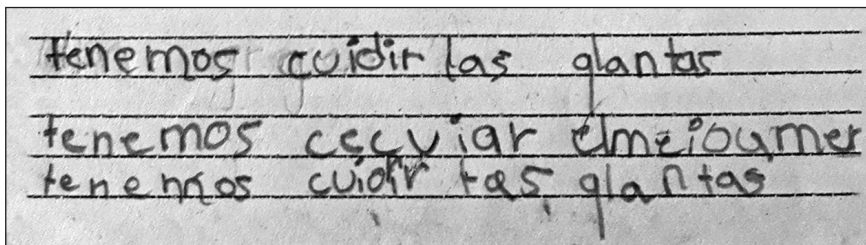 tenemos cuidir las glantas
tenemos cecuiar elmeioumer
tenemos cuidir tas glantas